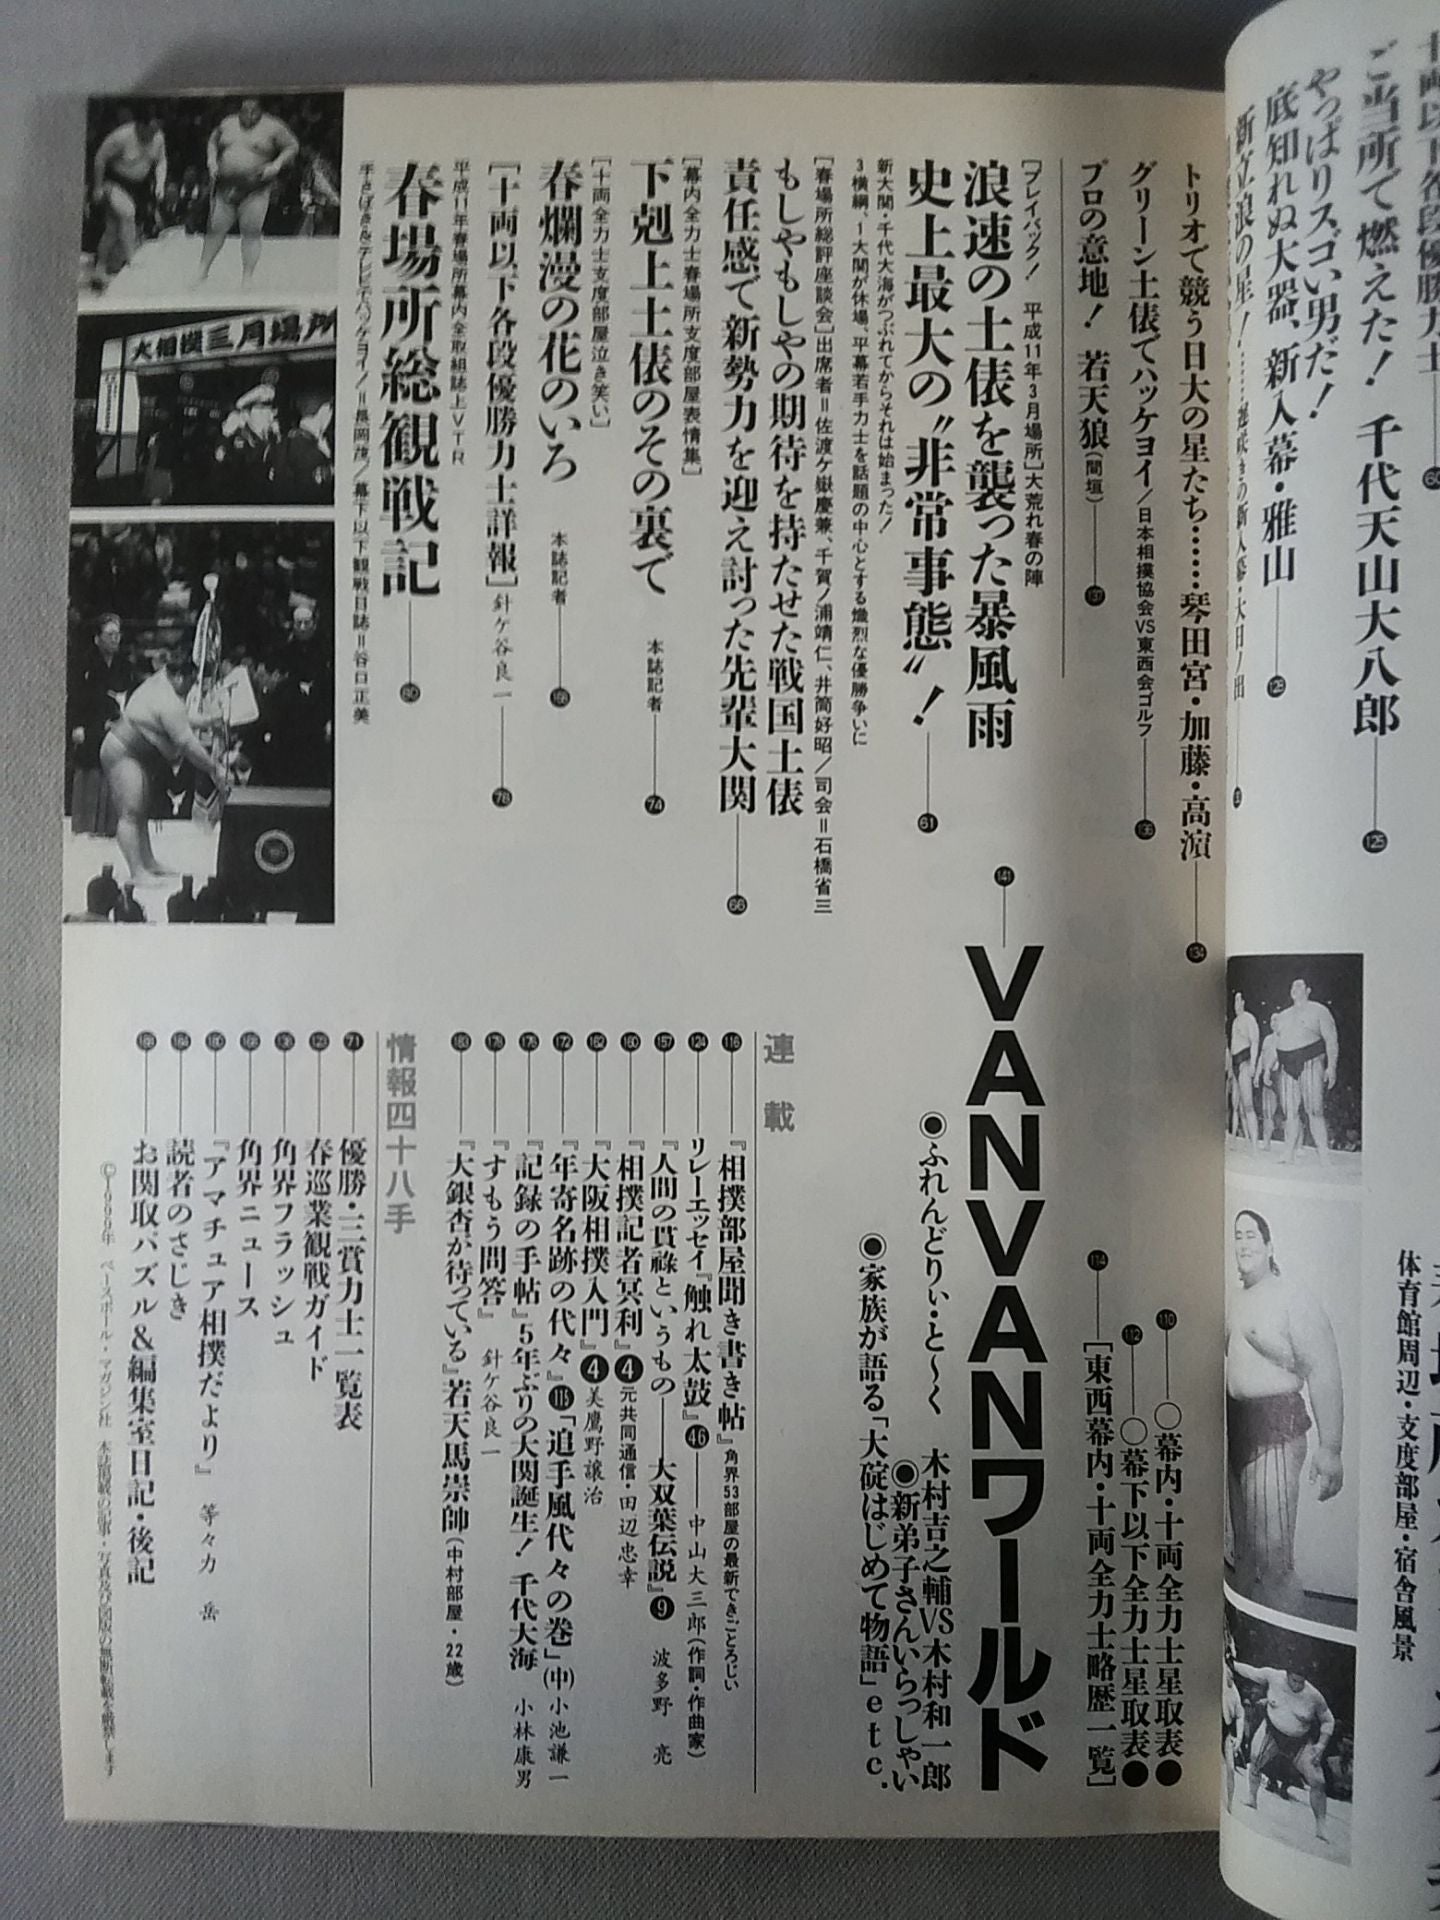 ご当所で燃えた！ 千代天山大八郎 125
やっぱりスゴい男だ！
底知れぬ大器、新入幕・雅山 128
体育館周辺・支度部屋・宿舎風景
トリオで競う日大の星たち……琴田宮・加藤・高濵 134
グリーン土俵でハッケヨイ／日本相撲協会VS東西会ゴルフ 136
プロの意地！ 若天狼(間垣) 137
[プレイバック！ 平成11年3月場所]大荒れ春の陣
浪速の土俵を襲った暴風雨
史上最大の〝非常事態〟！ 61
新大関・千代大海がつぶれてからそれは始まった！
3横綱、1大関が休場、平幕若手力士を話題の中心とする熾烈な優勝争いに
[春場所総評座談会]出席者＝佐渡ケ嶽慶兼、千賀ノ浦靖仁、井筒好昭／司会＝石橋省三
もしやもしやの期待を持たせた戦国土俵
責任感で新勢力を迎え討った先輩大関 66
[幕内全力士春場所支度部屋表情集]
下剋上土俵のその裏で 本誌記者 74
[十両全力士支度部屋泣き笑い]
春爛漫の花のいろ 本誌記者 168
[十両以下各段優勝力士詳報] 針ケ谷良一 78
春場所総観戦記 80
平成11年春場所幕内全取組誌上VTR
手さばき&テレビデハッケヨイ！＝長岡茂／幕下以下観戦日誌＝谷口正美
大相撲三月場所
110 ○幕内・十両全力士星取表●
112 ○幕下以下全力士星取表●
114 [東西幕内・十両全力士略歴一覧]
141 VANVANワールド
◉ふれんどりぃ・と〜く 木村吉之輔VS木村和一郎
◉新弟子さんいらっしゃい
◉家族が語る「大碇はじめて物語」etc.
連載
116 『相撲部屋聞き書き帖』角界53部屋の最新できごとろじい
124 リレーエッセイ『触れ太鼓』46 中山大三郎(作詞・作曲家)
157 『人間の貫祿というもの――大双葉伝説』9 波多野 亮
160 『相撲記者冥利』4 元共同通信・田辺忠幸
162 『大阪相撲入門』4 美鷹野譲治
172 『年寄名跡の代々』115「追手風代々の巻」(中)小池謙一
175 『記録の手帖』5年ぶりの大関誕生！ 千代大海 小林康男
178 『すもう問答』 針ケ谷良一
183 『大銀杏が待っている』若天馬崇師(中村部屋・22歳)
情報四十八手
71 優勝・三賞力士一覧表
123 春巡業観戦ガイド
138 角界フラッシュ
165 角界ニュース
180 『アマチュア相撲だより』 等々力 岳
184 読者のさじき
188 お関取パズル&編集室日記・後記
©1999年 ベースボール・マガジン社 本誌掲載の記事・写真及び図版の無断転載を厳禁します